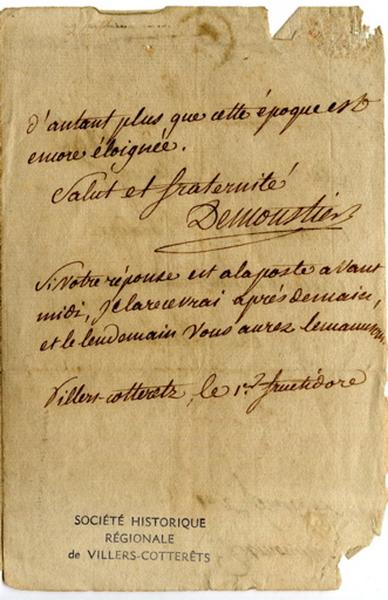 d'autant plus que cette époque est
encore éloignée.
Salut et fraternité
Demoustier
Si votre réponse est a la poste avant
midi, je la recevrai après demain,
et le lendemain vous aurez le manuscri
Villers-cotteretz, le 1.er fructidore
SOCIÉTÉ HISTORIQUE
RÉGIONALE
de VILLERS-COTTERÊTS